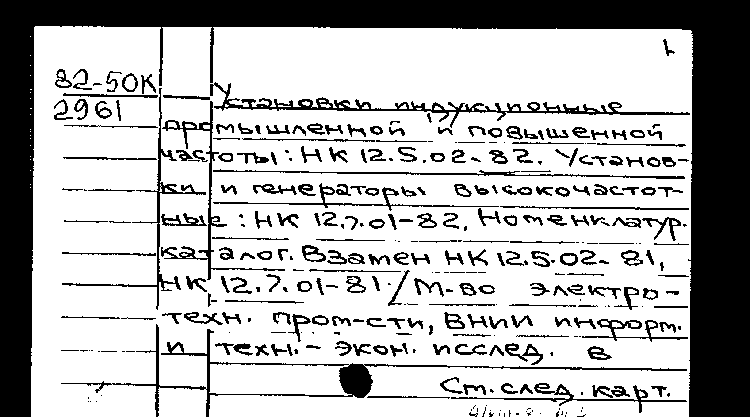 82-50К
2961
Установки индукционные
промышленной и повышенной
частоты: НК 12.5.02-82. Установ-
ки и генераторы высокочастот-
ные: НК 12.7.01-82, Номенклатур.
каталог. Взамен НК 12.5.02-81,
НК 12.7.01-81./М-во электро-
техн. пром-сти, ВНИИ информ.
и техн.-экон. исслед. в
См. след. карт.